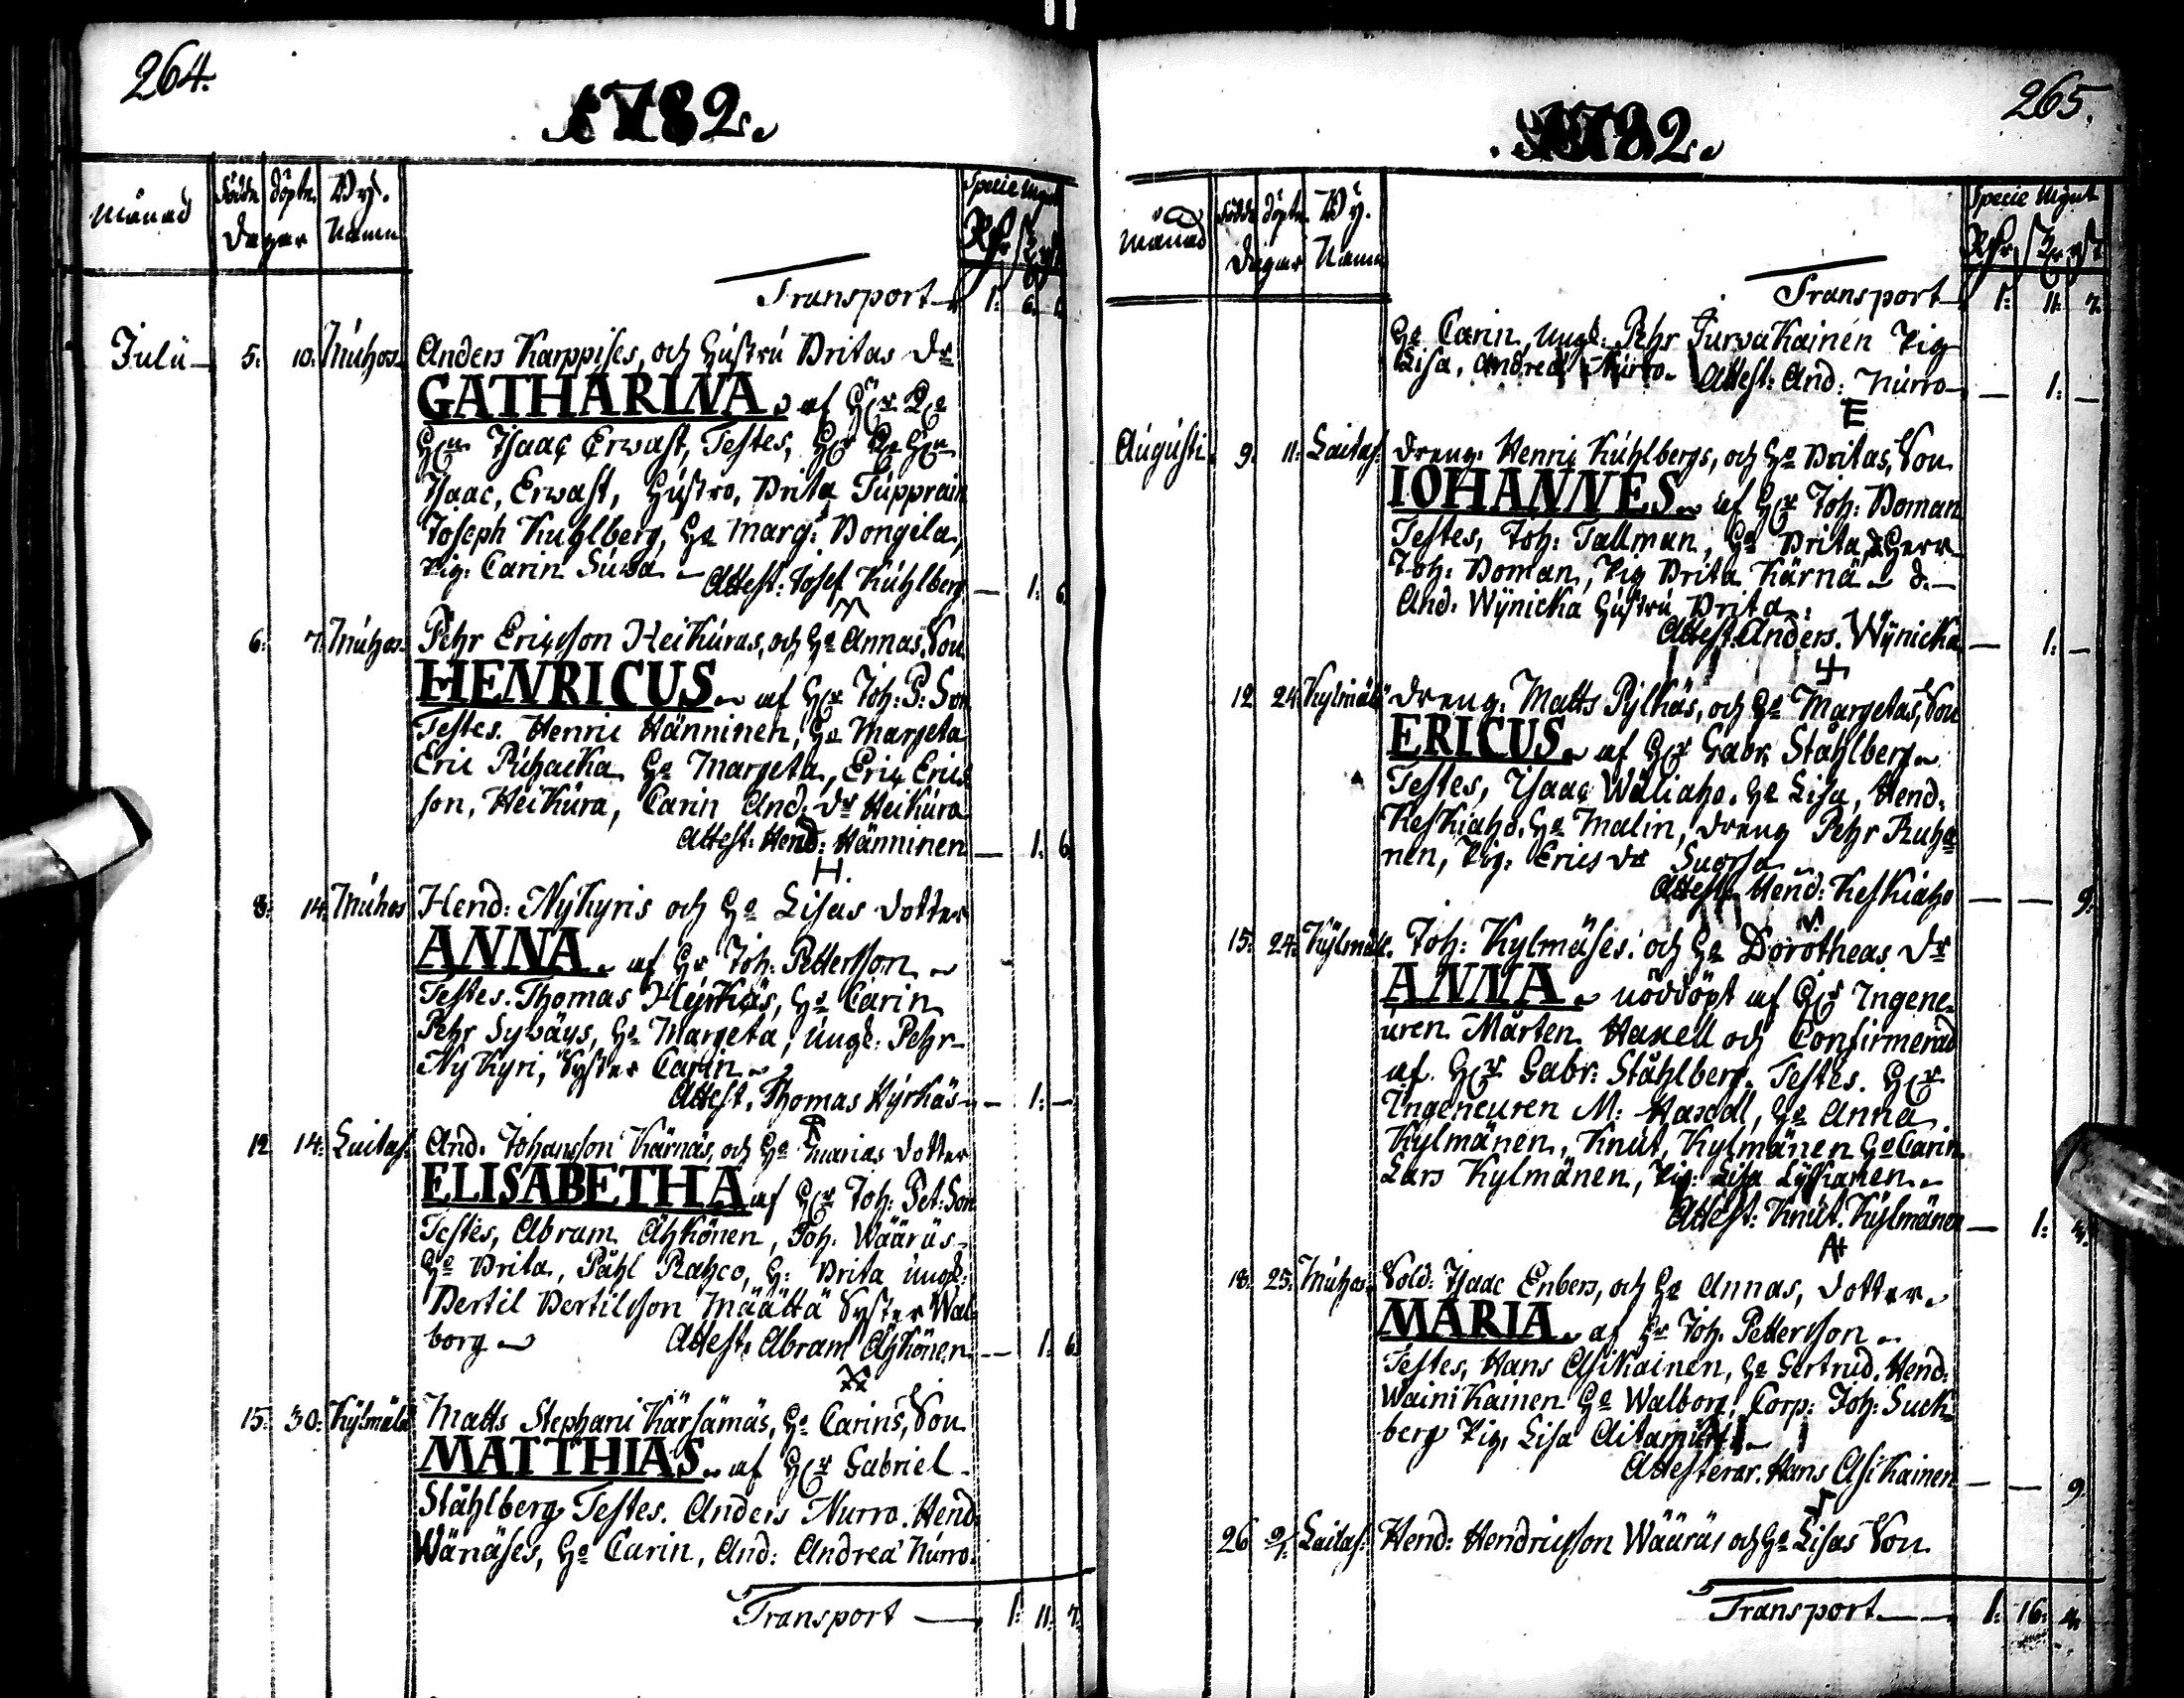 264.
1782.
Månad
födde
döpte
Dagar
By.
Namn
Specie Mynt
Rdr
ß
rst
Transport 1: 6.
Julii 5: 10: Muhos Anders Karppises, och Hustru Britas Dr
CATHARINA af H:r
Isaac Erwast, Testes,
Isaac, Erwast, Hustro, Brita Tupprain
Joseph Kuhlberg, H:o Marg: Bongila,
Pig: Carin Suwa
Attest: Josef Kuhlberg — 1: 6.
6: 7: Muhos Pehr Ericsson Heikuras, och H:o Annas Son
HENRICUS af H:r Joh: P: Son
Testes. Henric Hänninen, H:o Margeta
Eric Puhacka H:o Margeta, Eric Erics
son, Heikura, Carin And: Dr Heikura
Attest: Hend: Hänninen — 1: 6.
H.
8: 14: Muhos Hend: Nykyris och H:o Lisas Dotter
ANNA af H:r Joh: Pettersson
Testes. Thomas Hyrkäs, H:o Carin
Pehr Sywäys, H:o Margeta, Ungk: Pehr
Nykyri, Syster Carin
Attest. Thomas Hyrkäs — 1: —
12 14: Laitas: And: Johansson Kärnäs, och H:o Marias Dotter
ELISABETHA af H:r Joh: Pet: Son
Testes, Abram Ähkönen, Joh: Wäärüs
H:o Brita, Påhl Rahco, H: Brita Ungk:
Bertil Bertilsson Määttä Syster Wal
borg Attest: Abram Ähkönen — 1: 6
15: 30: Kylmälä Matts Stephani Kärsämäs, H:o Carins, Son
MATTHIAS af H:r Gabriel
Ståhlberg Testes. Anders Nurro. Hend
Wänäses, H:o Carin, And: Andreæ Nurro.
Transport — 1: 11: 7.
265.
1782.
Månad
födde
döpte
Dagar
By.
Namn
Specie Mynt
Rdr
ß
rst
Transport 1: 11: 7.
H:o Carin, Ungk: Pehr Turwakainen Pig
Lisa, Andreæ Nurro. Attest: And: Nurro — 1: —
E
Augusti 9: 11: Laitas: Dreng: Henric Kuhlbergs, och H:o Britas, Son
IOHANNES af H:r Joh: Boman
Testes, Joh: Tallman, H:o Brita, Herr
Joh: Boman, Pig Brita Kärnä
And: Wynicka Hustru Brita:
Attest: Anders. Wynicka — 1: —
12 24: Kylmälä Dreng: Matts Pylkäs, och H:o Margetas, Son
ERICUS af H:r Gabr: Ståhlberg
Testes, Isaac Wäliaho. H:o Lisa, Hend:
Keskiaho, H:o Malin, Dreng Pehr Ruha
nen, Pig: Erics Dr Suorsa
Attest. Hend: Keskiaho — — 9.
15: 24: Kylmälä. Joh: Kylmäses: och H:o Dorotheas, Dr
ANNA nöddöpt af H:r Ingene
uren Mårten Haxell och Confirmerad
af H:r Gabr: Ståhlberg. Testes. H:r
Ingeneuren M: Haxell, H:o Anna
Kylmänen, Knut, Kylmänen H:o Carin
Lars Kylmänen, Pig: Lisa Lykanen
Attest: Knut. Kylmänen — 1:
18: 25: Muhos Sold: Isaac Enbers, och H:o Annas, Dotter
MARIA af H:r Joh: Pettersson
Testes, Hans Asikainen, H:o Gertrud. Hend:
Wainikainen H:o Walborg, Corp: Joh: Suck
berg Pig, Lisa
Attesterar. Hans Asikainen — — 9.
26 Laitas: Hend: Hendricsson Wäärüs och H:o Lisas Son
Transport — 1: 16: